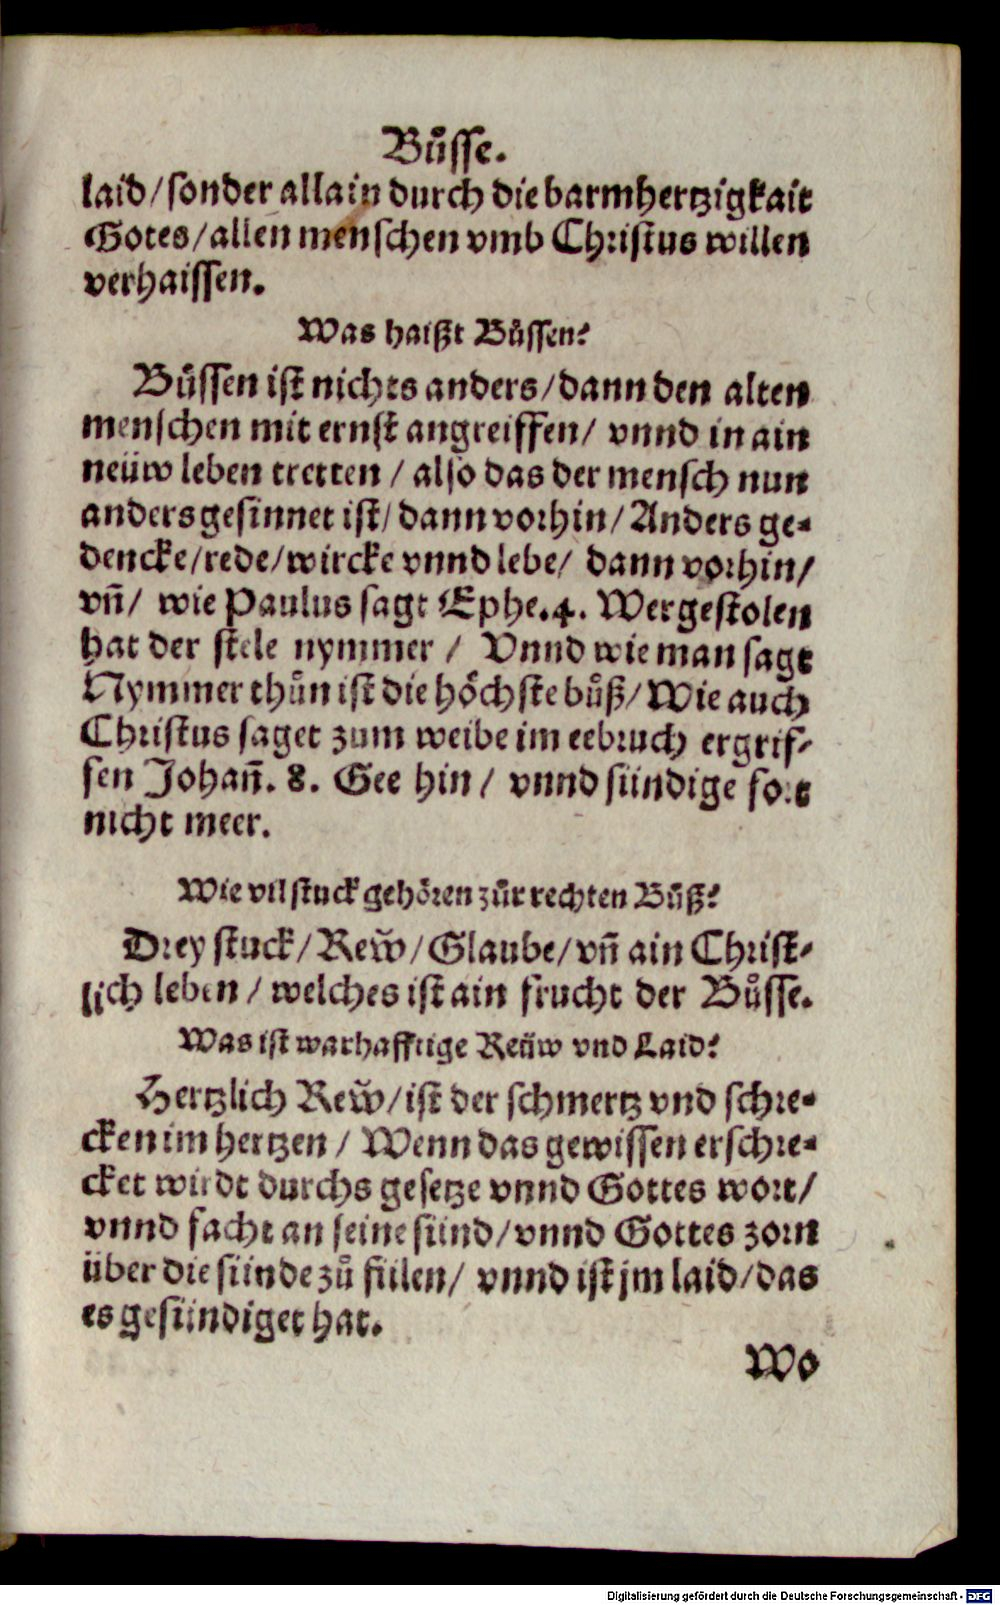 Bůsse.
laid/sonder allain durch die barmhertzigkait
Gotes/allen menschen vmb Christus willen
verhaissen.
Was haißt Bůssen?
Bůssen ist nichts anders/dann den alten
menschen mit ernst angreiffen/ vnnd in ain
neüw leben tretten / also das der mensch nun
anders gesinnet ist/ dann vorhin/ Anders ge-
dencke/rede/wircke vnnd lebe/ dann vorhin/
vñ/ wie Paulus sagt Ephe.4. Wer gestolen
hat der stele nymmer / Vnnd wie man sagt
Nymmer thůn ist die höchste bůß/ Wie auch
Christus saget zum weibe im eebruch ergrif-
fen Johañ. 8. Gee hin / vnnd sündige fort
nicht meer.
Wie vil stuck gehören zůr rechten Bůß?
Drey stuck/ Rew̃/ Glaube/ vñ ain Christ-
lich leben / welches ist ain frucht der Bůsse.
Was ist warhafftige Reüw vnd Laid?
Hertzlich Rew̃/ist der schmertz vnd schre-
cken im hertzen / Wenn das gewissen erschre-
cket wirdt durchs gesetze vnnd Gottes wort/
vnnd facht an seine sünd/vnnd Gottes zorn
über die sünde zů fülen/ vnnd ist jm laid/das
es gesündiget hat.
Wo
Digitalisierung gefördert durch die Deutsche Forschungsgemeinschaft - DFG